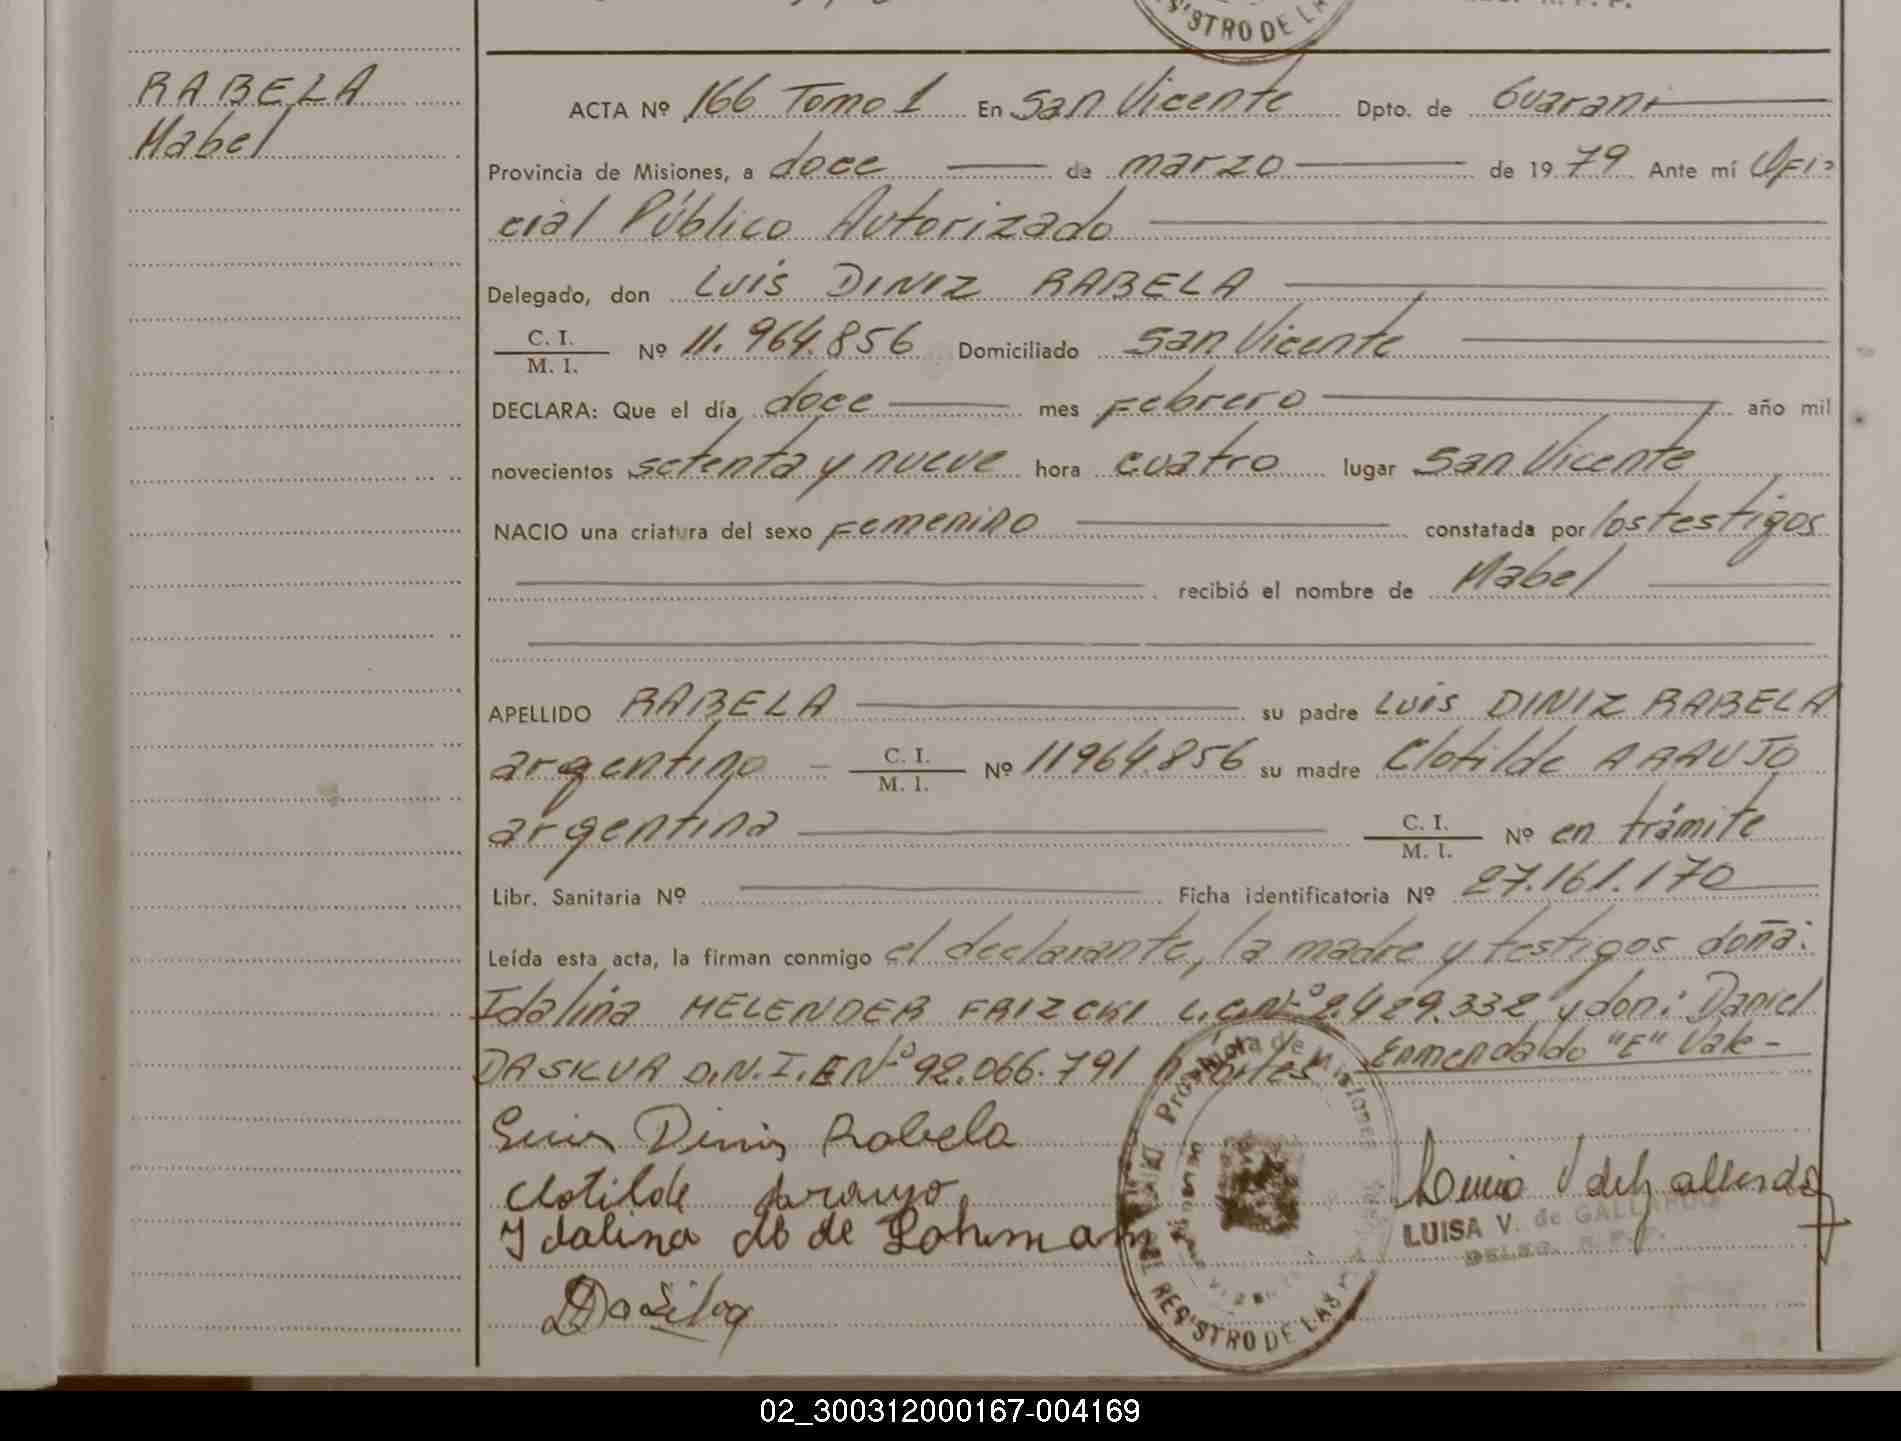 REGISTRO DE LA
RABELA
Mabel
ACTA Nº 166 Tomo 1 En San Vicente Dpto. de Guarani
Provincia de Misiones, a doce de marzo de 1979 Ante mí Ofi-
cial Público Autorizado
Delegado, don Luis DINIZ RABELA
C. I. / M. I. Nº 11.964.856 Domiciliado San Vicente
DECLARA: Que el día doce mes Febrero año mil
novecientos setenta y nueve hora cuatro lugar San Vicente
NACIO una criatura del sexo Femenino constatada por los testigos
recibió el nombre de Mabel
APELLIDO RABELA su padre Luis DINIZ RABELA
argentino C. I. / M. I. Nº 11964.856 su madre Clotilde ARAUJO
argentina C. I. / M. I. Nº en trámite
Libr. Sanitaria Nº Ficha identificatoria Nº 27.161.170
Leída esta acta, la firman conmigo el declarante, la madre y testigos doña:
Idalina MELENDER FRIZCKI L.C.Nº 2.429.332 y don: Daniel
DA SILVA D.N.I.E Nº 92.066.791 hábiles Enmendado "E" Vale -
Luis Diniz Rabela
Clotilde Araujo
Idalina de Lohmann
DaSilva
Provincia de Misiones
REGISTRO DE LAS
LUISA V. de GALLARDO
DELEG. R. P. P.
02_300312000167-004169